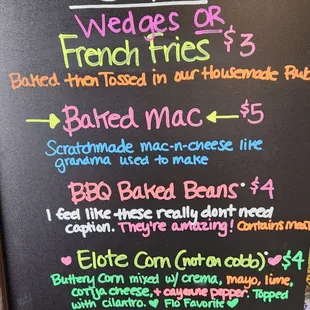 Wedges OR
French Fries $3
Baked then Tossed in our Housemade Rub
Baked Mac $5
Scratchmade mac-n-cheese like
grandma used to make
BBQ Baked Beans* $4
I feel like these really dont need
caption. They're amazing! Contains meat
Elote Corn (not on cobb) $4
Buttery Corn mixed w/ crema, mayo, lime,
cotija cheese, + cayenne pepper. Topped
with cilantro. Flo Favorite